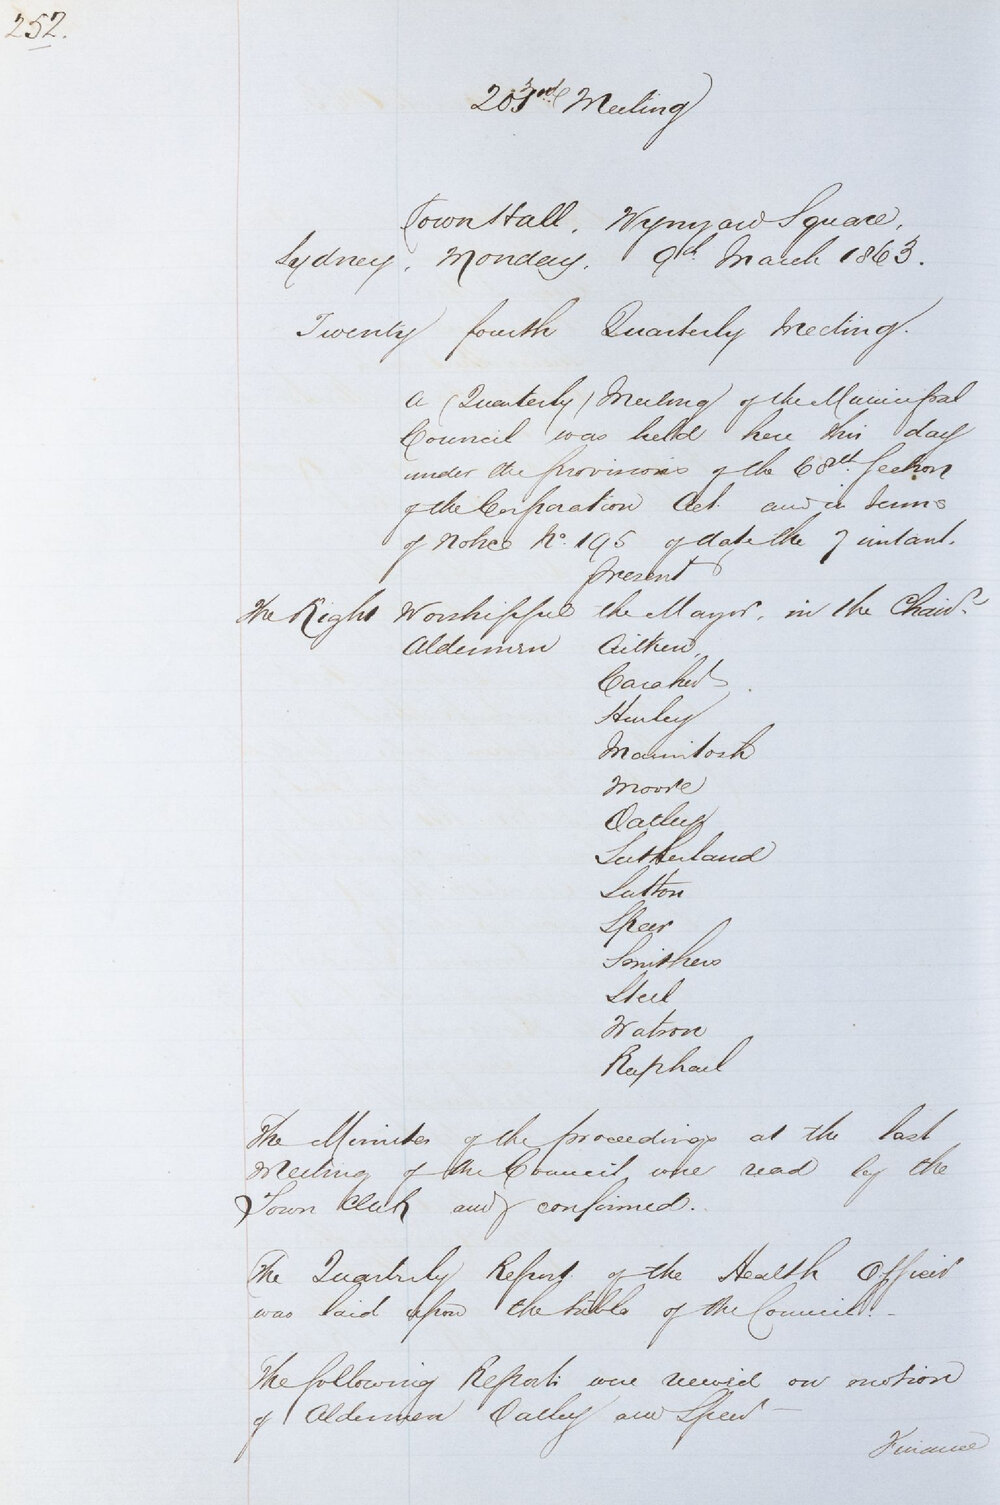 252.
203rd Meeting
Town Hall, Wynyard Square,
Sydney, Monday, 9th March 1863.
Twenty fourth Quarterly Meeting.
A (Quarterly) Meeting of the Municipal
Council was held here this day
under the provisions of the 68th Section
of the Corporation Act and in terms
of Notice No. 195 of date the 7 instant.
Present
The Right Worshipful the Mayor, in the Chair
Aldermen Aitken,
Caraher
Hurley
Macintosh
Moore
Oatley
Sutherland
Sutton
Speer
Smithers
Steel
Watson
Raphael
The Minutes of the proceedings at the last
Meeting of the Council were read by the
Town Clerk and confirmed.
The Quarterly Report of the Health Officer
was laid upon the table of the Council. -
The following Reports were received on motion
of Aldermen Oatley and Speer -
Finance